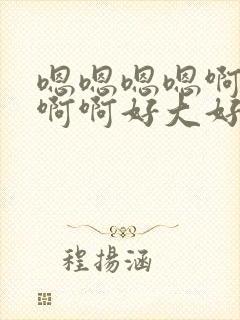 嗯嗯嗯嗯啊
啊啊好大好
程揚涵